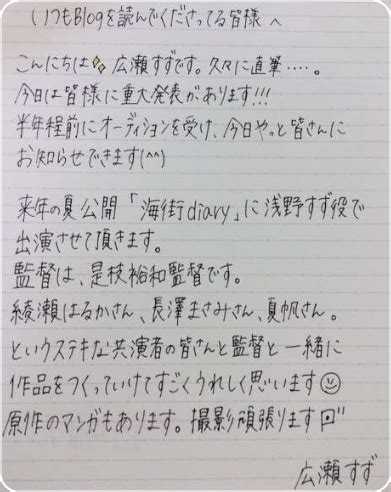 いつもBlogを読んでくださってる皆様へ
こんにちは✨広瀬すずです。久々に直筆‥‥。
今日は皆様に重大発表があります!!!
半年程前にオーディションを受け、今日やっと皆さんに
お知らせできます(^^)
来年の夏公開「海街diary」に浅野すず役で
出演させて頂きます。
監督は、是枝裕和監督です。
綾瀬はるかさん、長澤まさみさん、夏帆さん。
というステキな共演者の皆さんと監督と一緒に
作品をつくっていけてすごくうれしく思います☺
原作のマンガもあります。撮影頑張ります
広瀬すず